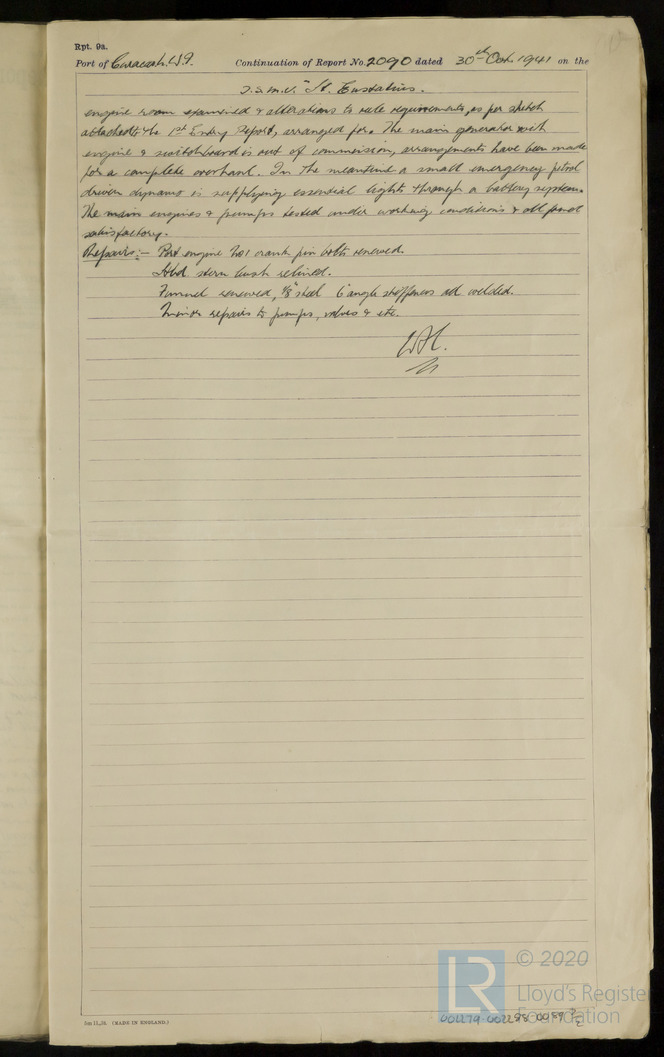 Rpt. 9a.
Port of Curacao W.I. Continuation of Report No. 2090 dated 30th Oct. 1941 on the
T.S.M.V. "St. Eustatius.
engine room examined & alterations to rule requirements, as per sketch
attached to the 1st Entry Report, arranged for. The main generator with
engine & switchboard is out of commission, arrangements have been made
for a complete overhaul. In the meantime a small emergency petrol
driven dynamo is supplying essential lights through a battery system.
The main engines & pumps tested under working conditions & all found
satisfactory.
Repairs:- Port engine No 1 crank pin bolts renewed.
Stbd stern bush relined.
Funnel renewed, 1/8" steel 6" angle stiffeners all welded.
Minor repairs to pumps, valves & etc.
© 2020
LR
Lloyd's Register
Foundation
(MADE IN ENGLAND.)